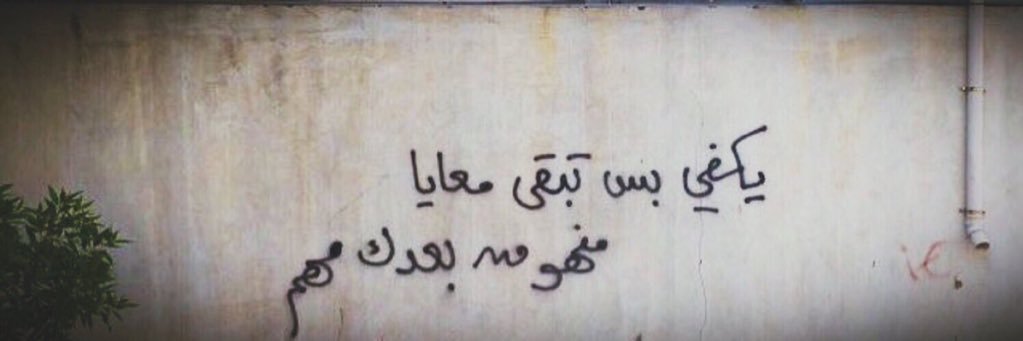 يكفي بس تبقى معايا
منهو من بعدك مهم